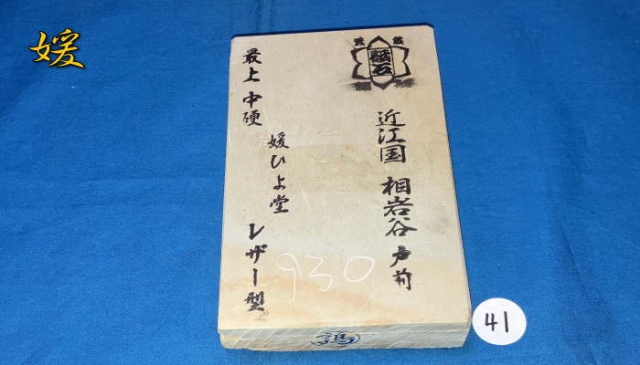 媛
天然
砥石
近江国 相岩谷 戸前
最上 中硬
媛ひよ堂
レザー型
930
41